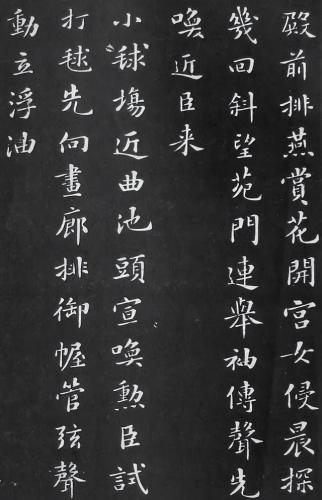 殿前排燕賞花開宫女侵晨探
幾回斜望苑門連舉袖傳聲先
喚近臣来
小毬場近曲池頭宣喚勲臣試
打毬先向畫廊排御幄管弦聲
動立浮油